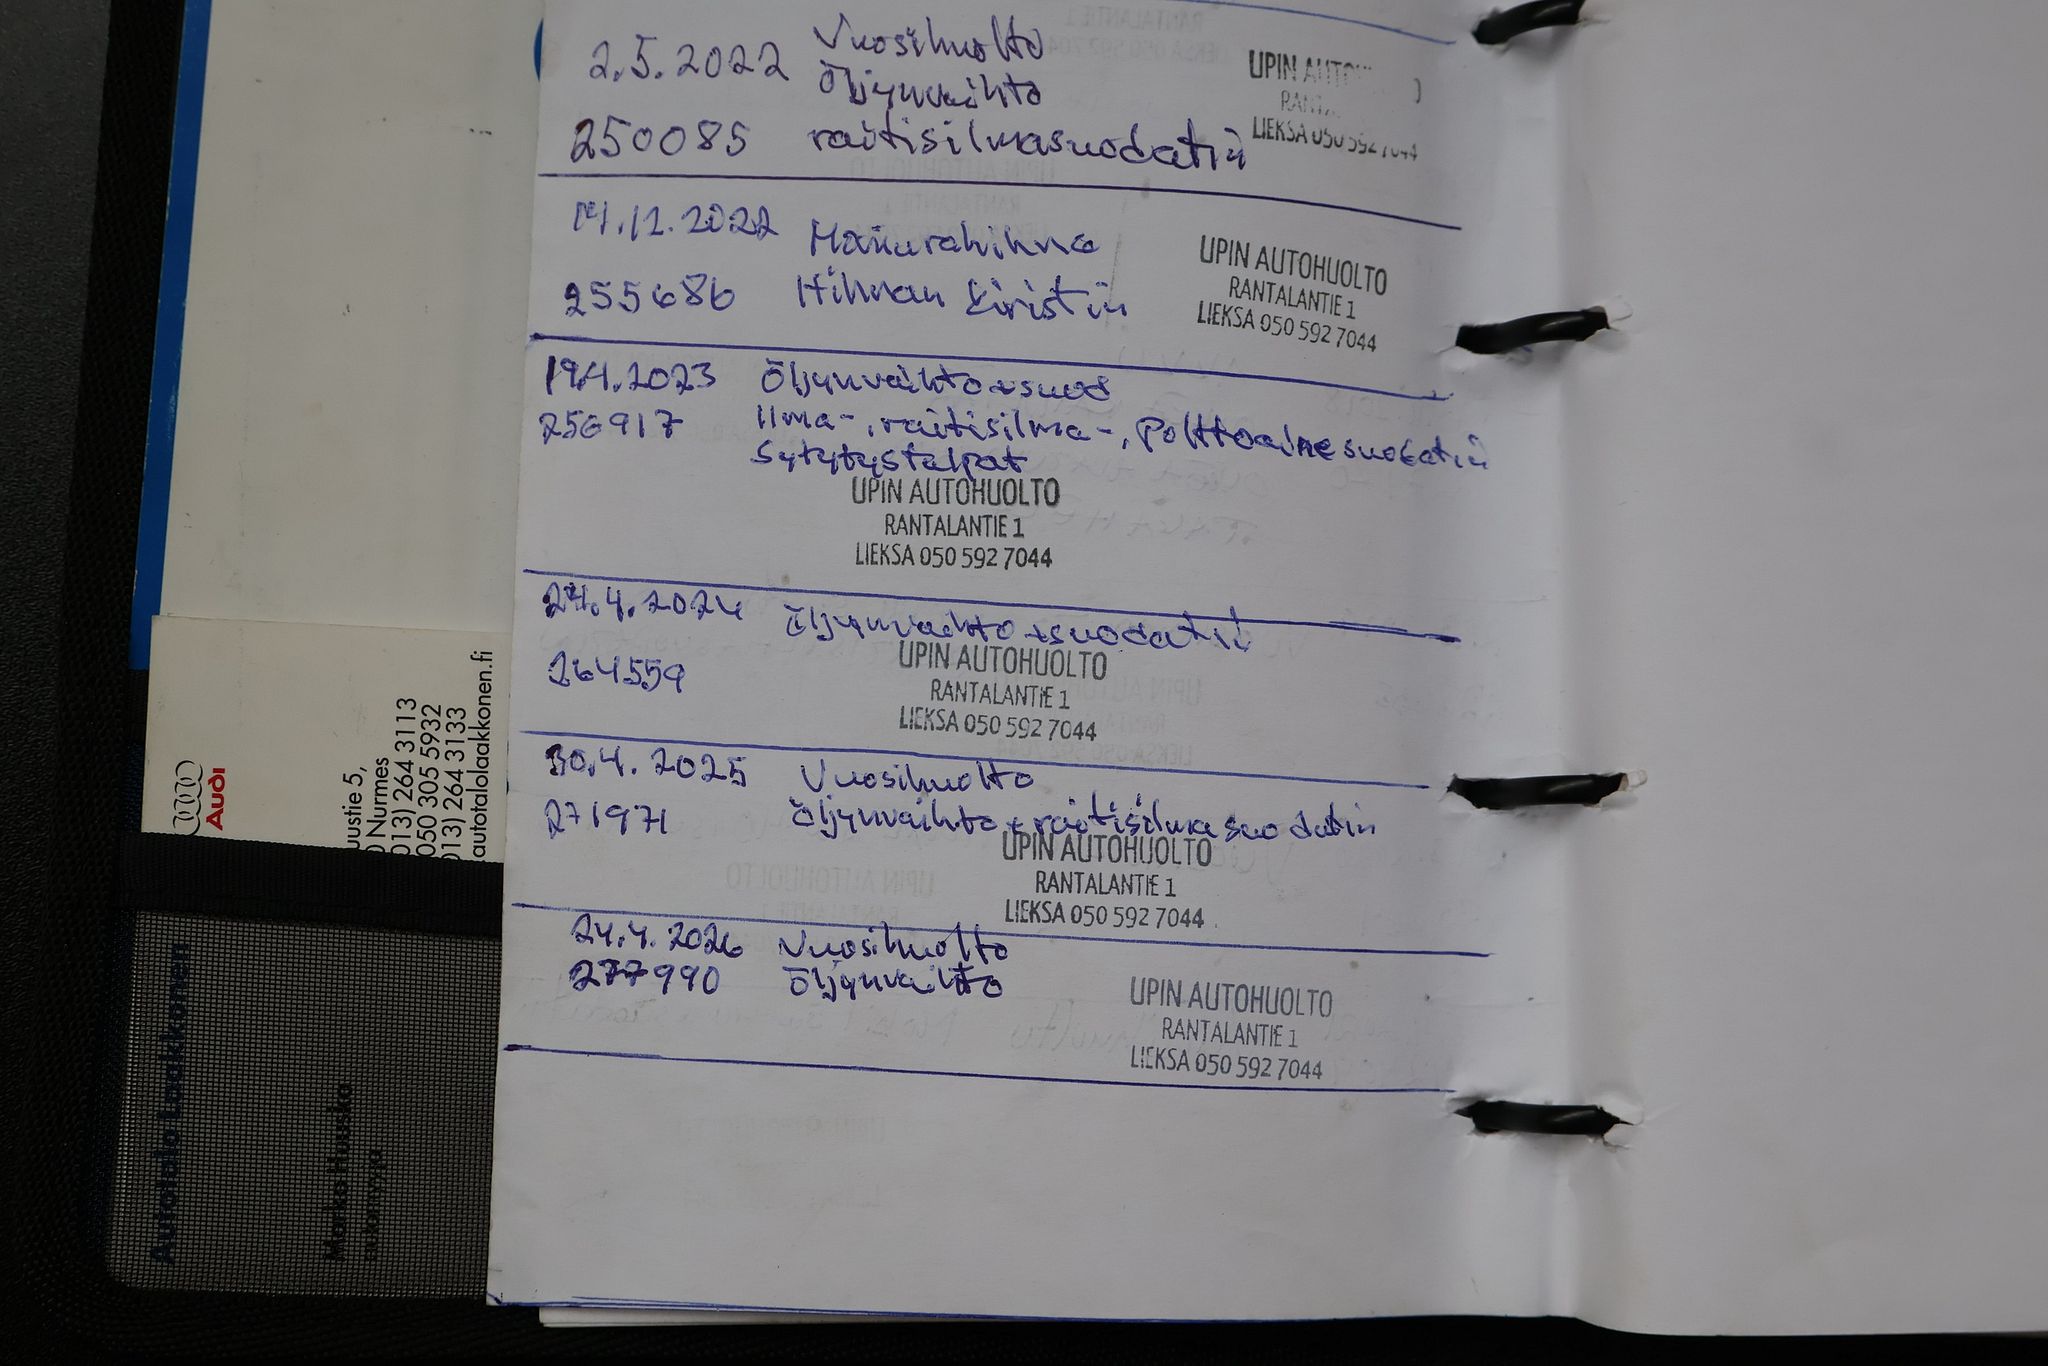 2.5.2022 Vuosihuolto
Öljynvaihto
250085 raitisilmasuodatin
UPIN
LIEKSA 050 592 7044
.12.2022
255686 Hihnan kiristin
UPIN AUTOHUOLTO
RANTALANTIE 1
LIEKSA 050 592 7044
19.4.2023 Öljynvaihto+suod
256917 Ilma-, raitisilma-, Polttoainesuodatin
Sytytystulpat
UPIN AUTOHUOLTO
RANTALANTIE 1
LIEKSA 050 592 7044
24.4.2024 Öljynvaihto+suodatin
264559
UPIN AUTOHUOLTO
RANTALANTIE 1
LIEKSA 050 592 7044
30.4.2025 Vuosihuolto
271971 Öljynvaihto+raitisilmasuodatin
UPIN AUTOHUOLTO
RANTALANTIE 1
LIEKSA 050 592 7044
24.4.2026 Vuosihuolto
277990 Öljynvaihto
UPIN AUTOHUOLTO
RANTALANTIE 1
LIEKSA 050 592 7044
Audi
uustie 5,
Nurmes
013) 264 3113
050 305 5932
13) 264 3133
autotalolaakkonen.fi
Autotalo Laakkonen
Marko
automyyjä